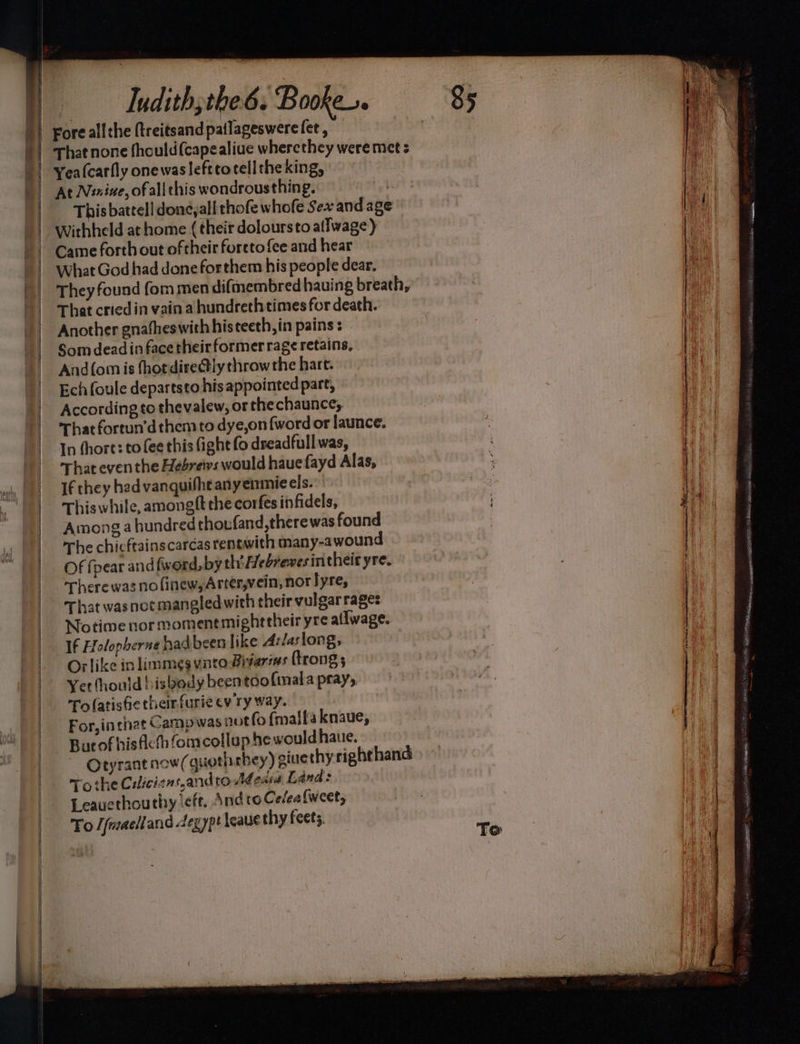 Iudith, the 6. Booke. 85
Fore all the ſtreits and paſſages were ſet,
That none ſhould ſcape aliue where they were met:
Yea ſcarſly one was left to tell the king,
At Niniue, of all this wondrous thing.
This battell done, all thoſe whoſe Sex and age
Withheld at home (their dolours to aſſwage)
Came forth out of their fort to ſee and hear
What God had done for them his people dear.
They found ſom men diſmembred hauing breath,
That cried in vain a hundreth times for death.
Another gnaſhes with his teeth, in pains:
Som dead in face their former rage retains,
And ſom is ſhot directly throw the hart.
Ech ſoule departs to his appointed part,
According to the valew, or the chaunce,
That fortun'd them to dye, on ſword or launce.
In ſhort: to ſee this ſight ſo dreadfull was,
That even the Hebrews would haue ſayd Alas,
If they had vanquiſht any enmie els.
This while, amongſt the corſes infidels,
Among a hundred thouſand, there was found
The chieftains carcas rent with many-a wound
Of ſpear and ſword, by th' Hebrewes in their yre.
There was no ſinew, Arter, vein, nor lyre,
That was not mangled with their vulgar rage:
No time nor moment might their yre aſſwage.
If Holopherne had been like Atlas long,
Or like in limmes vnto Briarius ſtrong;
Yet ſhould his body been too ſmal a pray,
To ſatisfie their furie ev'ry way.
For, in that Camp was not ſo ſmall a knaue,
But of his fleſh ſom collup he would haue.
O tyrant now (quoth they) giue thy right hand
To the Cilicians, and to Medes Land:
Leaue thou thy left. And to Celea ſweet,
To Iſmaell and Aegypt leaue thy feets.
To